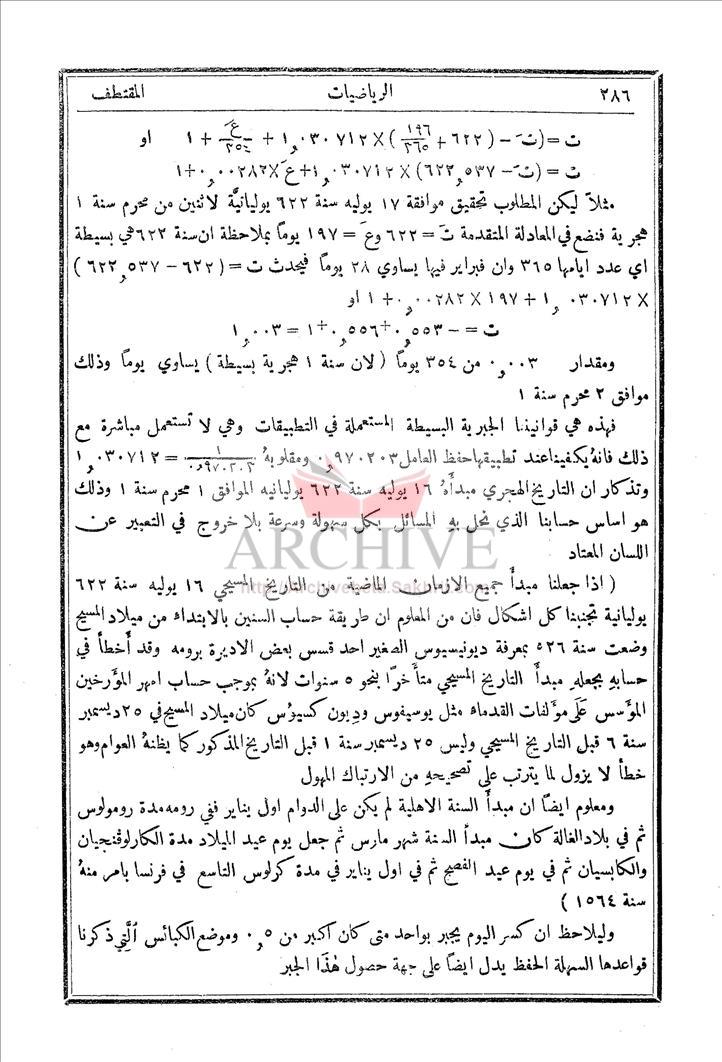 ٢٨٦ الرياضيات المقتطف
ت = (تَ - (٦٢٢ + ١٩٦/٣٦٥) × ١,٠٣٠٧١٢ + عَ/٣٥٤ + ١ او
ت = (تَ - ٦٢٢,٥٣٧) × ١,٠٣٠٧١٢ + عَ × ٠,٠٠٢٨٢ + ١
مثلاً ليكن المطلوب تحقيق موافقة ١٧ يوليه سنة ٦٢٢ يوليانيَّة لاثنين من محرم سنة ١
هجرية فنضع في المعادلة المتقدمة تَ = ٦٢٢ وعَ = ١٩٧ يوماً بملاحظة ان سنة ٦٢٢ هي بسيطة
اي عدد ايامها ٣٦٥ وان فبراير فيها يساوي ٢٨ يوماً فيحدث ت = (٦٢٢ - ٦٢٢,٥٣٧)
× ١,٠٣٠٧١٢ + ١٩٧ × ٠,٠٠٢٨٢ + ١ او
ت = - ٠,٥٥٣ + ٠,٥٥٦ + ١ = ١,٠٠٣
ومقدار ٠,٠٠٣ من ٣٥٤ يوماً (لان سنة ١ هجرية بسيطة) يساوي يوماً وذلك
موافق ٢ محرم سنة ١
فهذه هي قوانيننا الجبرية البسيطة المستعملة في التطبيقات وهي لا تستعمل مباشرة مع
ذلك فانهُ يكفينا عند تطبيقها حفظ العامل ٠,٩٧٠٢٠٣ ومقلوبهُ ١/٠,٩٧٠٢٠٣ = ١,٠٣٠٧١٢
وتذكار ان التاريخ الهجري مبدأهُ ١٦ يوليه سنة ٦٢٢ يوليانيه الموافق ١ محرم سنة ١ وذلك
هو اساس حسابنا الذي نحل بهِ المسائل بكل سهولة وسرعة بلا خروج في التعبير عن
اللسان المعتاد
ARCHIVE
(اذا جعلنا مبدأ جميع الازمان الماضية من التاريخ المسيحي ١٦ يوليه سنة ٦٢٢
يوليانية تجنبنا كل اشكال فان من المعلوم ان طريقة حساب السنين بالابتداء من ميلاد المسيح
وضعت سنة ٥٢٦ بمعرفة ديونيسيوس الصغير احد قسس بعض الاديرة برومه وقد أخطأ في
حسابهِ بجعلهِ مبدأ التاريخ المسيحي متأخراً بنحو ٥ سنوات لانهُ بموجب حساب امهر المؤرخين
المؤسس عَلَى مؤلفات القدماء مثل يوسيفوس وديون كسيوس كان ميلاد المسيح في ٢٥ ديسمبر
سنة ٦ قبل التاريخ المسيحي وليس ٢٥ ديسمبر سنة ١ قبل التاريخ المذكور كما يظنهُ العوام وهو
خطأ لا يزول لما يترتب على تصحيحهِ من الارتباك المهول
ومعلوم ايضاً ان مبدأ السنة الاهلية لم يكن على الدوام اول يناير ففي رومه مدة رومولوس
ثم في بلاد الغالة كان مبدأ السنة شهر مارس ثم جعل يوم عيد الميلاد مدة الكارلوڤنجيان
والكابسيان ثم في يوم عيد الفصح ثم في اول يناير في مدة كرلوس التاسع في فرنسا بامر منهُ
سنة ١٥٦٤)
وليلاحظ ان كسر اليوم يجبر بواحد متى كان اكبر من ٠,٥ وموضع الكبائس الَّتي ذكرنا
قواعدها السهلة الحفظ يدل ايضاً على جهة حصول هٰذا الجبر